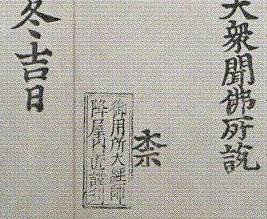 大衆聞佛所説
柰
御用所大經師
降屋内匠謹刊
冬吉日